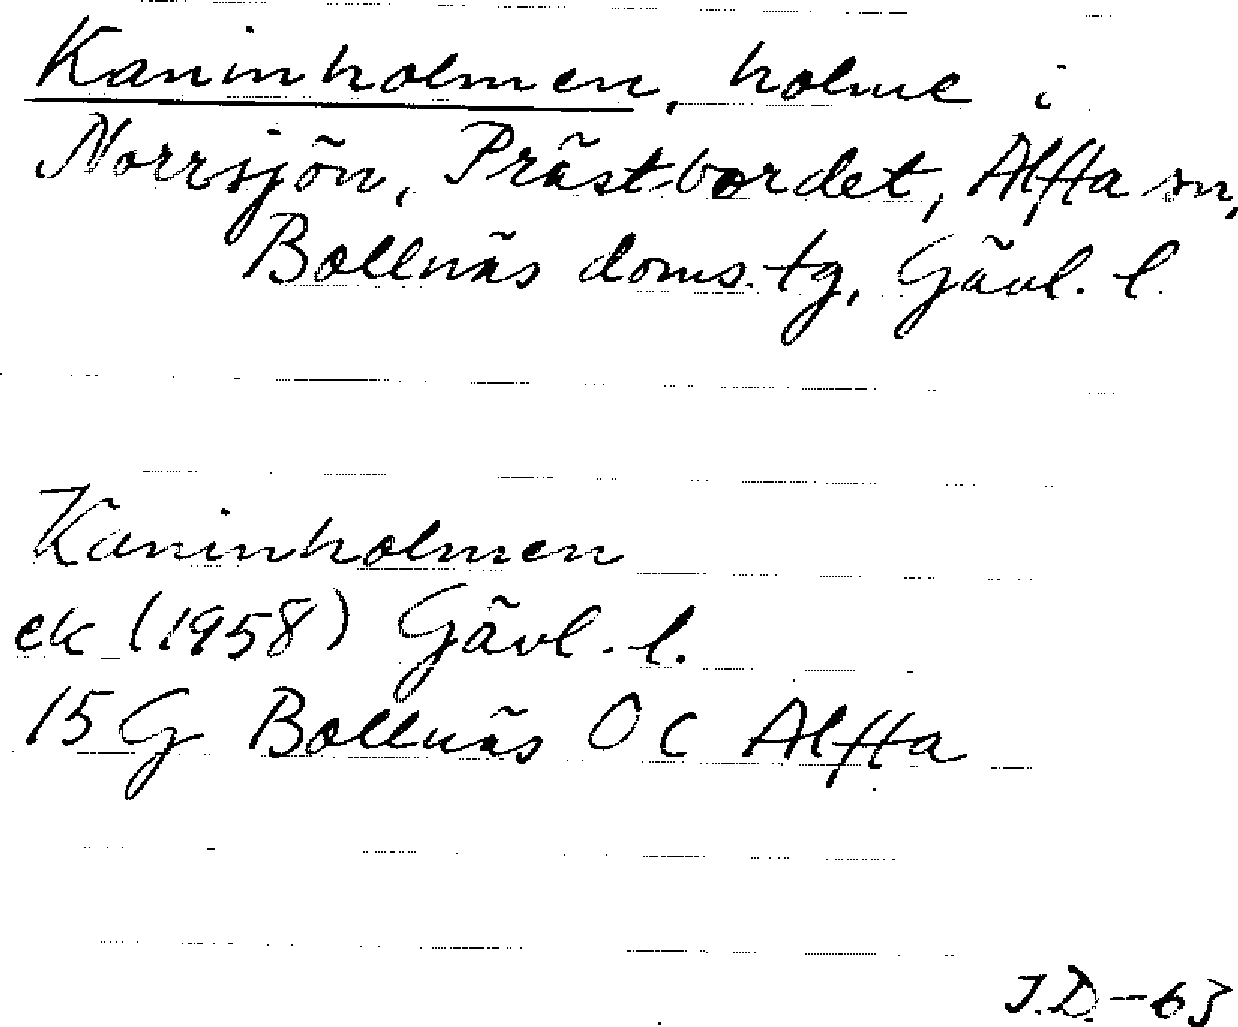 Kaninholmen, holme i
Norrsjön, Prästbordet, Alfta sn,
Bollnäs doms.tg, Gävl. l.
Kaninholmen
ek (1958) Gävl. l.
15 G Bollnäs 0 c Alfta
J.D. -63